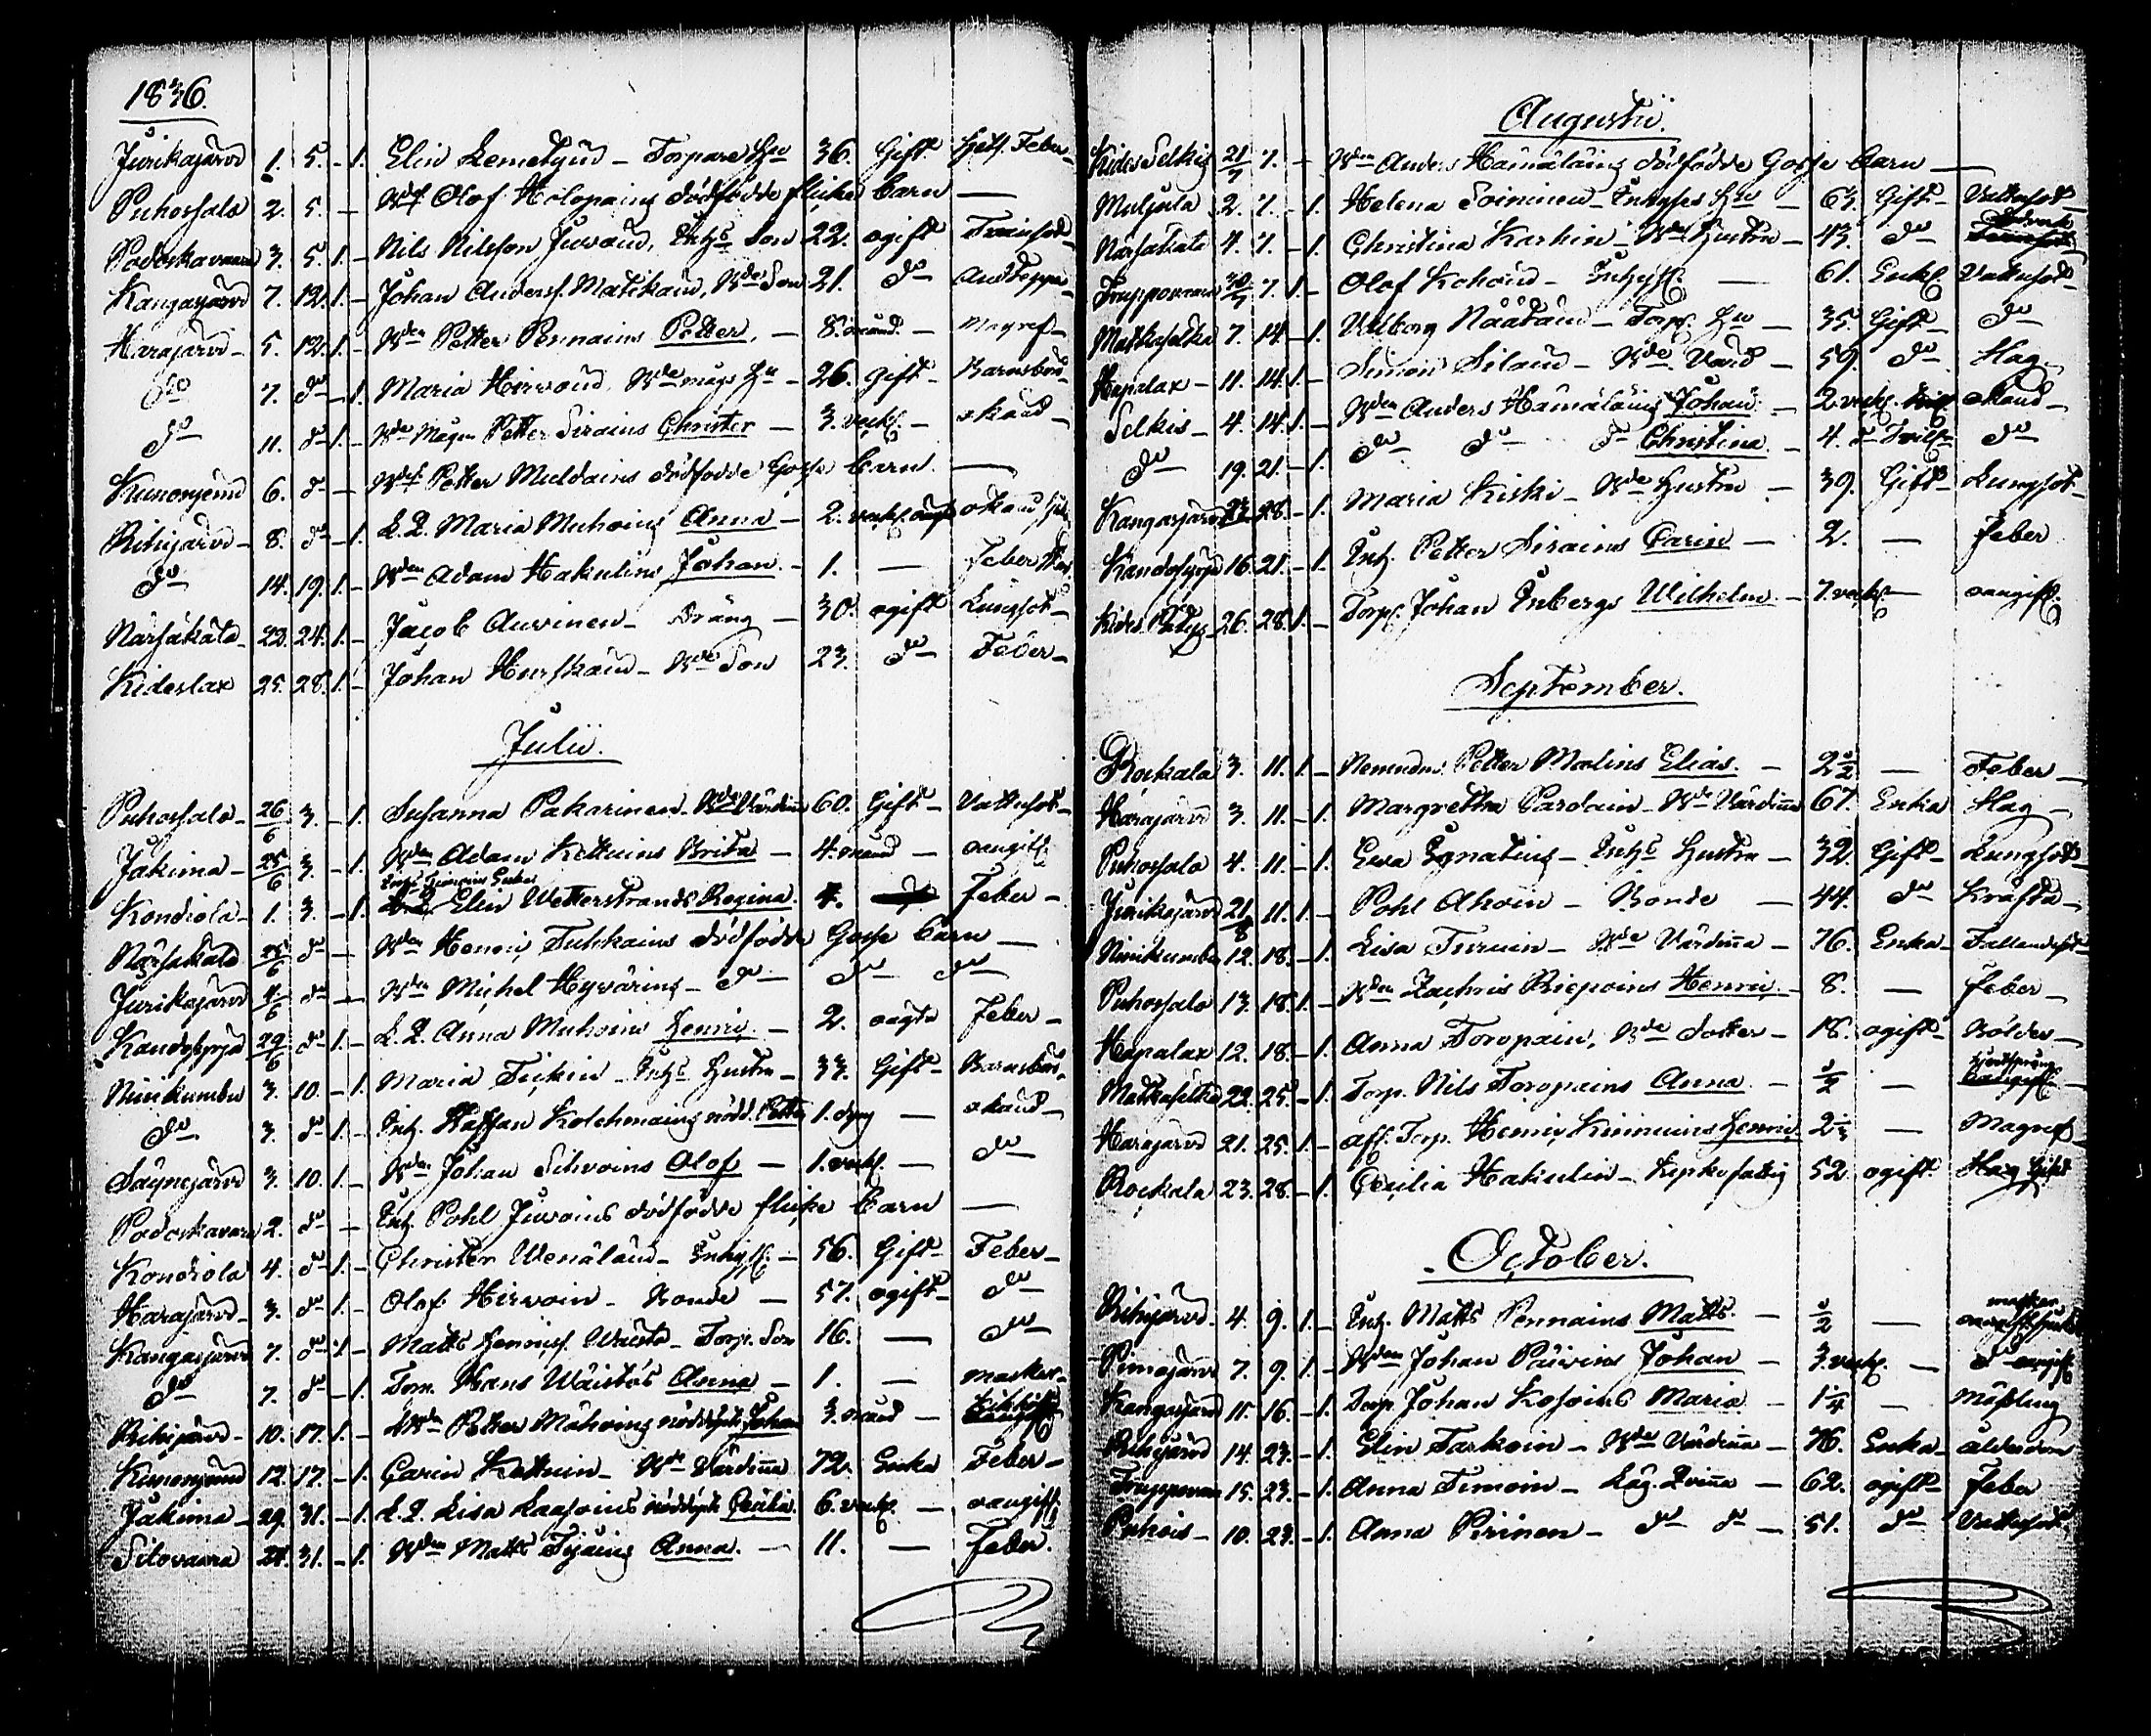 1836.
Jurikajärvi 1. 5. - 1. Elin Lemetyind - Torpare Hu 36. Gift Het. Feber
Puhossalo 2. 5. - Olof Holopains dödfödde flicke barn —
Podoskavaara 3. 5. 1. - Nils Nilsson Juvaud, Inhs Son 22. ogift
Kangasjärvi 7. 12. 1. - Johan Anders. Matikain, Bde Son 21. do Andteppa
Harajärvi - 5. 12. 1. - Bden Petter Pennains Petter, — 8. månd. - Magref
do 7. do - 1. Maria Hirvoind, Bde mågs Hu - 26. Gift Barnsbörd
do 11. do 1. - Bde Mågen Petter Sirains Christer — 3. veck. - okänd
Kunonjemi 6. do - Petter Muldains dödfödde Gosse barn. —
Rihijärvi - 8. do - 1. L. Q. Maria Muhoins Anna — 2. okänd
do 14. 19. 1. - Bden Adam Hakulins Johan. - 1. — Feber
Närsäkälä - 22. 24. 1. - Jacob Auvinen - Dräng — 30. ogift Lungsot
Kideslax 25. 28. 1. - Johan Hurskain - Bde Son 23. do Feber

Julii.
Puhossalo - 26/6 3. - 1. Susanna Pakarinen. Bde Värdinna 60. Gift - Vattusot
Jakima - 25/6 3. - 1. Bden Adam Kettuins Brita — 4. månd — oangif.
Kondiola - 1. 3. - 1. Elin Wetterstrands Regina. 4. Feber -
Närsäkälä 25/6 do - Bden Henric Tuhkains dödfödde Gosse barn —
Jurikajärvi 4/6 do - Bden Michel Hyvärins - do - do do
Kandossyrjä 29/6 do 1. - L. Q. Anna Muhoins Henric. - 2. oägta Feber -
Niinikumbu 3. 10. - 1. Maria Tickin - Inhs Hustru - 33. Gift - Barnsbörd.
do 3. do 1. - Inh. Staffan Kolehmains nödd. Petter 1. dygn — okänd -
Säynejärvi 3. 10. 1. - Bden Johan Silvoins Olof — 1. veck. — do
Podoskavaara 2. do - Inh. Pohl Juvoins dödfödde flicke barn —
Kondiola 4. do 1. - Christer Wenäläin - Inhys. - 56. Gift - Feber -
Harajärvi - 3. do 1. - Olof Hirvoin - Bonde — 57. ogift - do
Kangasjärvi 7. do 1 - Matts Henrics. Wäistö - Torp. Son 16. — do
do 7. do - 1. Torp. Hans Wäistös Anna — 1. — masker -
Rihijärvi - 10. 17. 1. - Bden Petter Mähoins nöddöpt Johan 3. månd — Kikhosta
Kunonjemi 12. 17. - 1. Carin Kettuin - Bde Värdinna 72. Enka Feber -
Jakima - 29. 31. - 1. L. Q. Lisa Laasoins nöddöpt Cecilia. 6. veck. - oangif.
Silovaara 28. 31. - 1. Bden Matts Tijäins Anna. — 11. — Feber.

Augusti.
Kides Selkis 21/7 7. - Bden Anders Hämäläins dödfödde Gosse barn —
Muljula 2. 7. - 1. Helena Soininen - Inhyses Hu - 63. Gift - Vattusot
Närsäkälä 4. 7. - 1. Christina Karhin - Bdes Hustru - 43. do
Pruppovaara 30/7 7. 1. - Olof Kohoind - Inhys. — 61. Enkl. Vattusot -
Matkaselkä 7. 14. - 1. Valborg Näätäind - Torp. Hu - 35. Gift - do
Hepalax - 11. 14. 1. - Simon Silaud - Bde Värd - 59. do Slag -
Selkis - 4. 14. 1. - Bden Anders Hämäläins Johan. - 2 veck. okänd -
do 19. 21. - 1. do do do Christina. - 4. do Tvill - do
Kangasjärvi 23. 28. - 1. Maria Kiski - Bde Hustru — 39. Gift - Lungsot -
Kandossyrjä 16. 21. - 1. Inh. Petter Sirains Carin — 2. — Feber
Kides 26. 28. 1. - Torp. Johan Enbergs Wilhelm - 7. veck. — oangif.

September.
Rockala 3. 11. 1. - Nemndm. Petter Malins Elias. - 2 1/2 — Feber —
Harajärvi 3. 11. - 1. Margretha Pardain - Bde Värdinna 67. Enka Slag -
Puhossalo 4. 11. - 1. Ewa Ignatius - Inhs Hustru - 32. Gift - Lungsot -
Jurikajärvi 21/8 11. 1. - Pohl Ahoin - Bonde — 44. do Kräfta -
Niinikumbu 12. 18. - 1. Lisa Turuin - Bde Värdinna - 76. Enka - Fallandesot -
Puhossalo 13. 18. 1. - Bden Zachris Riepoins Henric. - 8. — Feber -
Hepalax 12. 18. - 1. Anna Toropain, Bde Dotter - 18. ogift - Bölder -
Matkaselkä 22. 25. - 1. Torp. Nils Toropains Anna. - 1/2 —
Harajärvi 21. 25. 1. - aff. Torp. Henric Kinnuins Henric. 2 1/2 — Magref
Rockala 23. 28. - 1. Cecilia Hakulin - Kyrkofattig 52. ogift Slag

October.
Rihijärvi - 4. 9. 1. - Inh. Matts Pennains Matts. - 1/2 — masken
Pimajärvi 7. 9. 1. - Bden Johan Päivins Johan — 3. veck. - oangif
Kangasjärvi 11. 16. - 1. Torp. Johan Kosoins Maria - 1 1/4 - Mässling
Rihijärvi 14. 23. - 1. Elin Tarkoin - Bde Värdinna - 76. Enka - ålderdom
Pruppovaara 15. 23. - 1. Anna Timoin - Läg. Qvinna — 62. ogift - Feber
Puhois - 10. 23. - 1. Anna Pirinen - do do - 51. do Vattusot